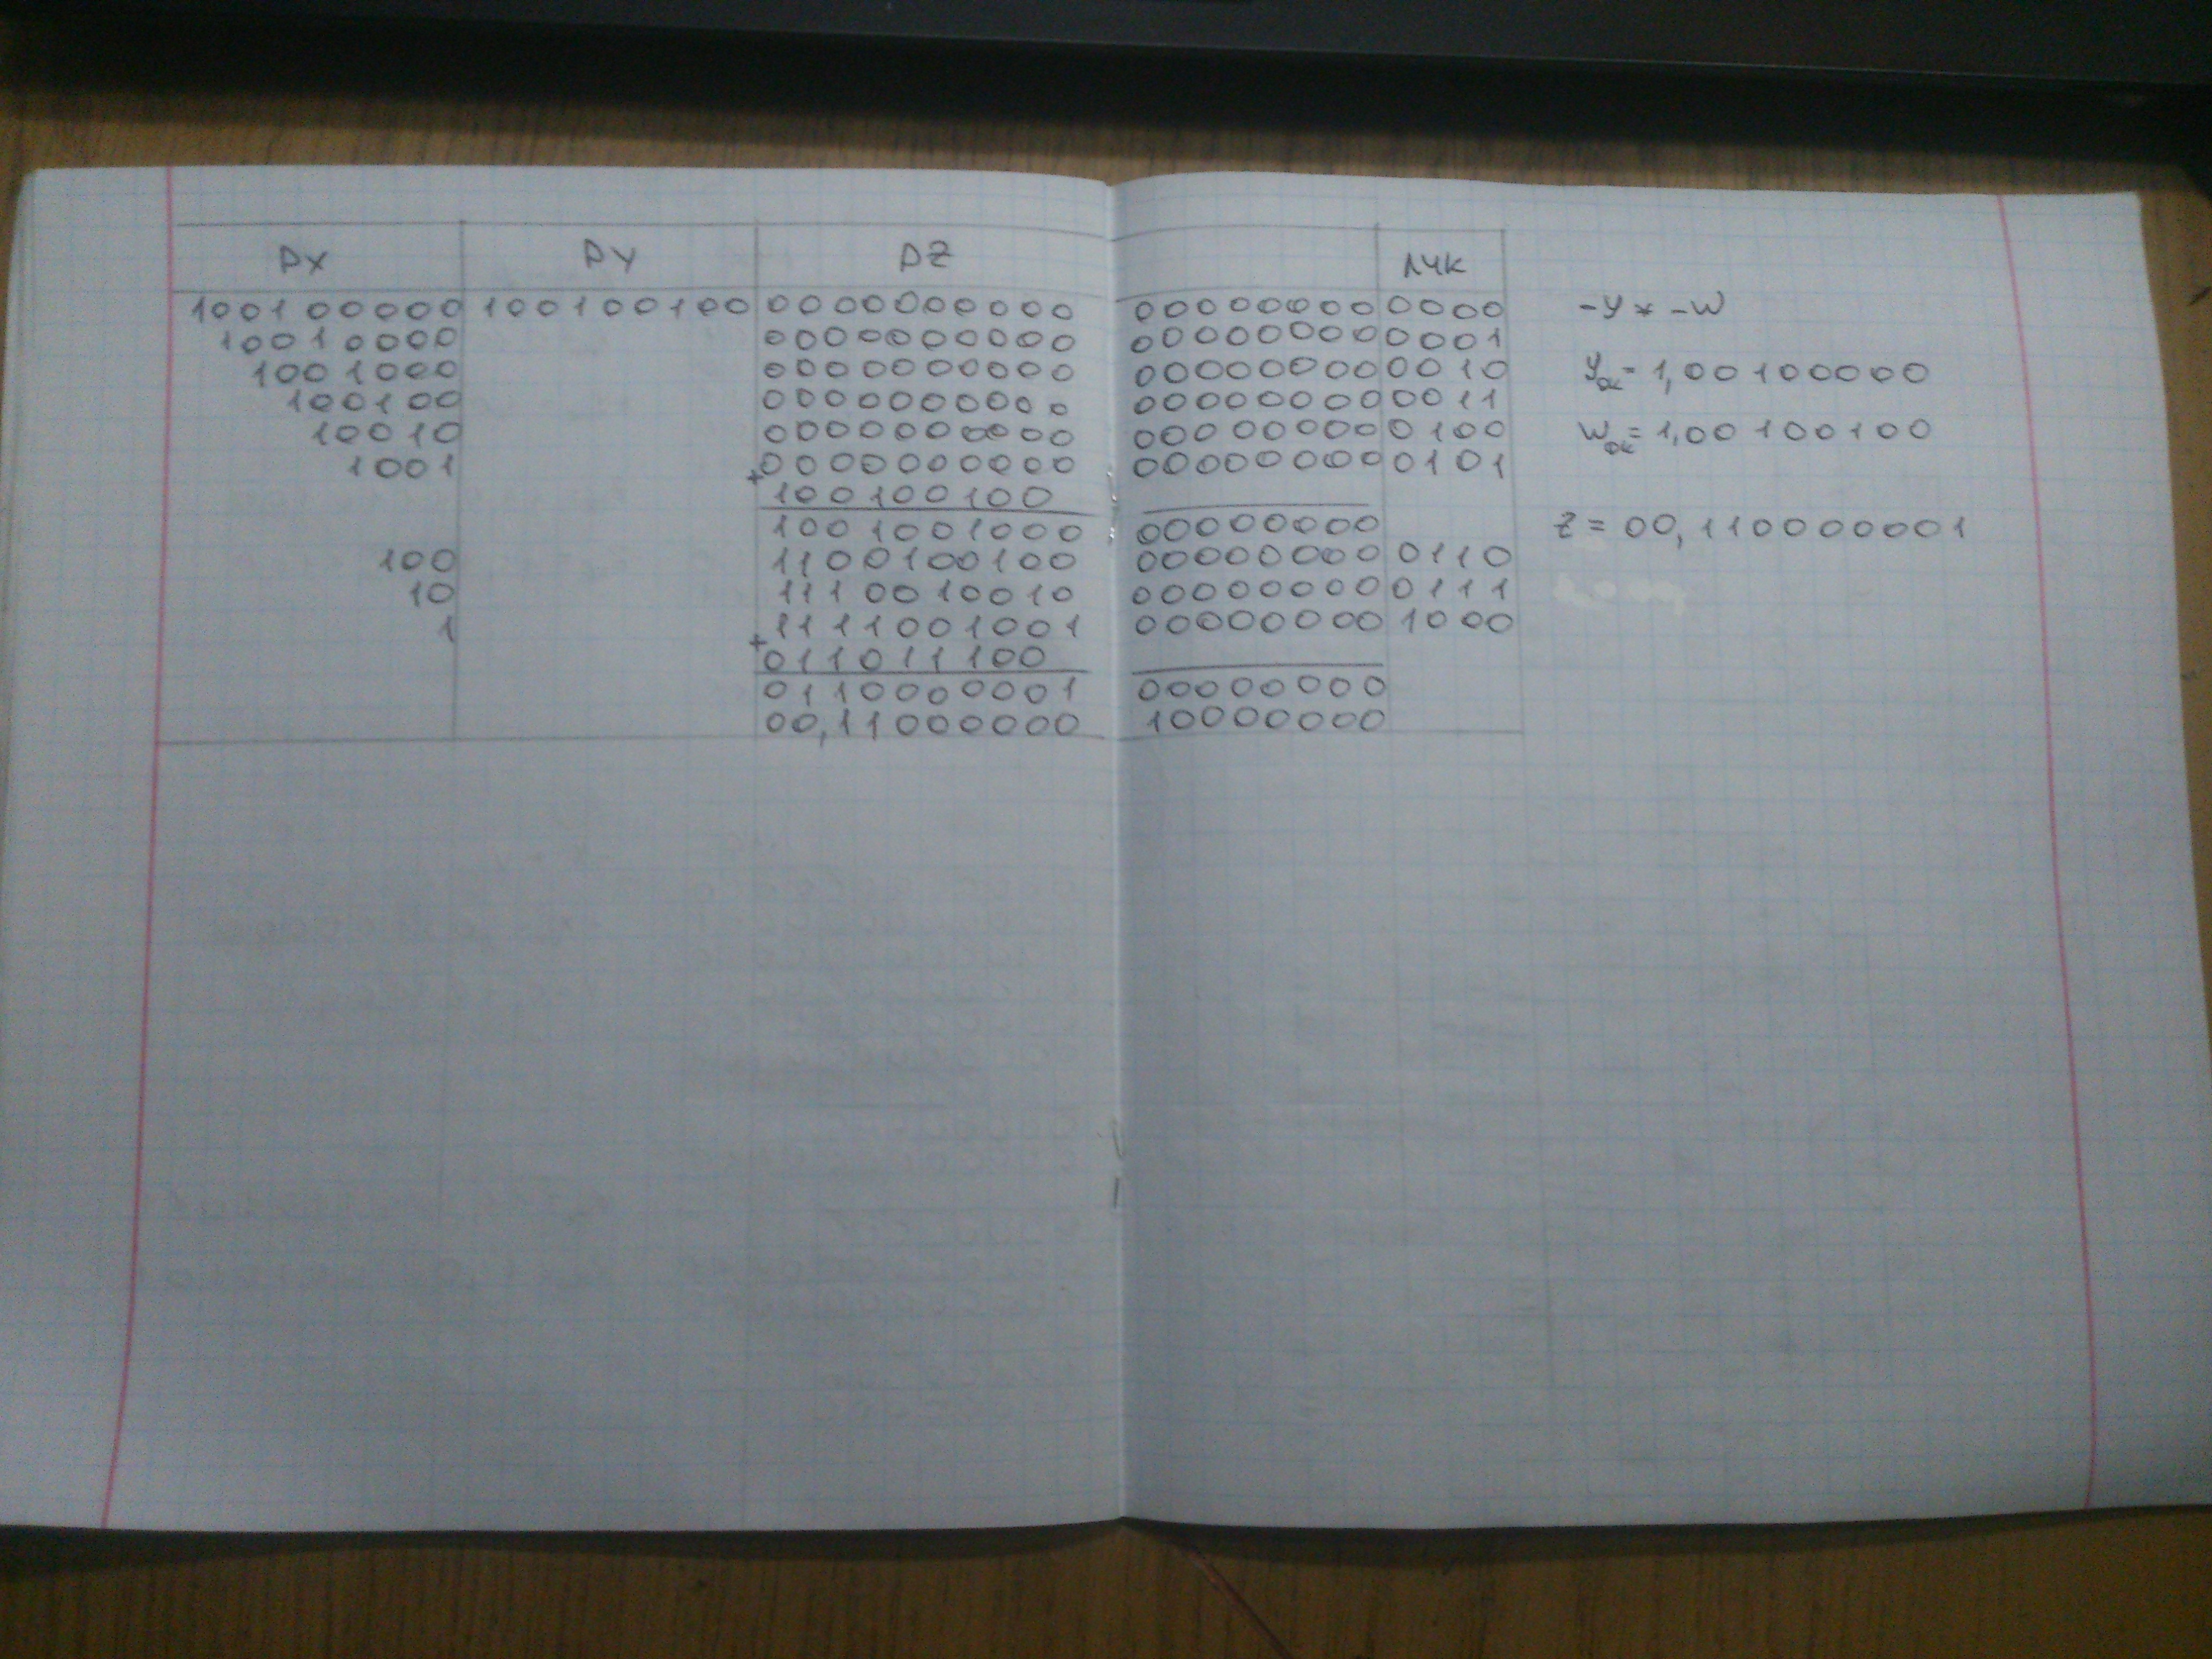 РХ РУ РZ ЛЧК
100100000 100100100 0000000000 00000000 0000 -y * -w
10010000 0000000000 00000000 0001
1001000 0000000000 00000000 0010 yок= 1,00100000
100100 0000000000 00000000 0011
10010 0000000000 00000000 0100 wок= 1,00100100
1001 0000000000 00000000 0101
+ 100100100
1001001000 00000000 z = 00,110000001
100 1100100100 00000000 0110
10 1110010010 00000000 0111
1 1111001001 00000000 1000
+ 011011100
0110000001 00000000
00,11000000 10000000